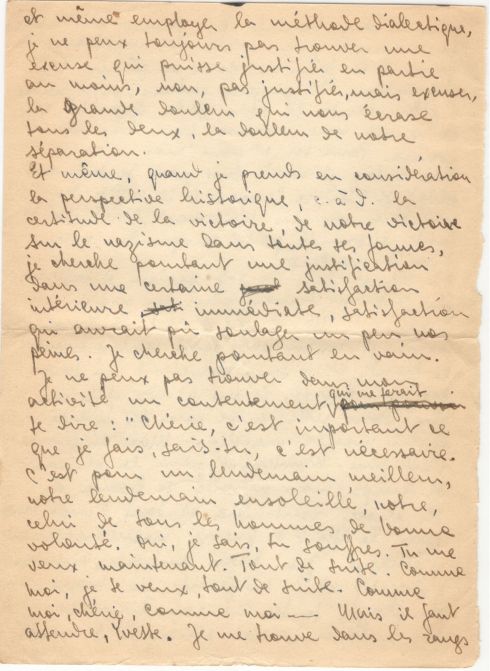 et même employer la méthode dialectique,
je ne peux toujours pas trouver une
excuse qui puisse justifier en partie
au moins, non, pas justifier, mais excuser,
la grande douleur qui nous écrase
tous les deux, la douleur de notre
séparation.
Et même, quand je prends en considération
la perspective historique, c. à d. la
certitude de la victoire, de notre victoire
sur le nazisme dans toutes ses formes,
je cherche pourtant une justification
dans une certaine satisfaction
intérieure immédiate, satisfaction
qui aurait pû soulager un peu nos
peines. Je cherche pourtant en vain.
Je ne peux pas trouver dans mon
activité un contentement qui me ferait
te dire : "Chérie, c'est important ce
que je fais, sais-tu, c'est nécessaire.
C'est pour un lendemain meilleur,
notre lendemain ensoleillé, notre,
celui de tous les hommes de bonne
volonté. Oui, je sais, tu souffres. Tu me
veux maintenant. Tout de suite. Comme
moi, je te veux, tout de suite. Comme
moi, chérie, comme moi — Mais il faut
attendre, Yvette. Je me trouve dans les rangs